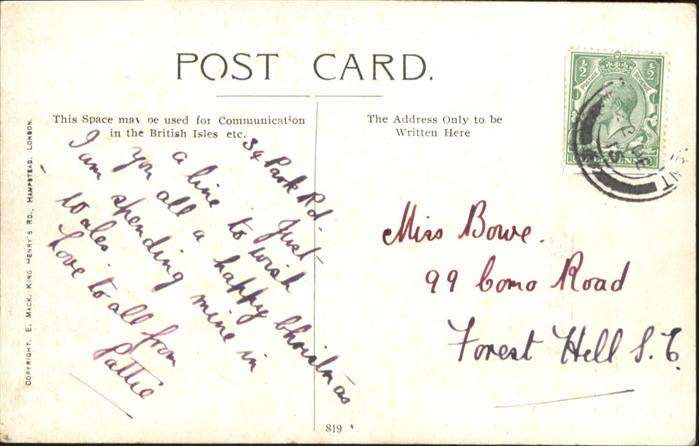 POST CARD.
This Space may be used for Communication
in the British Isles etc.
The Address Only to be
Written Here
34 Park Rd.
Just
a line to wish
you all a happy Christmas
I am spending mine in
Wales
Love to all from
Pattie
Miss Bowe.
99 Como Road
Forest Hill S.E.
COPYRIGHT, E. MACK, KING HENRY'S RD., HAMPSTEAD, LONDON.
819
½ ½